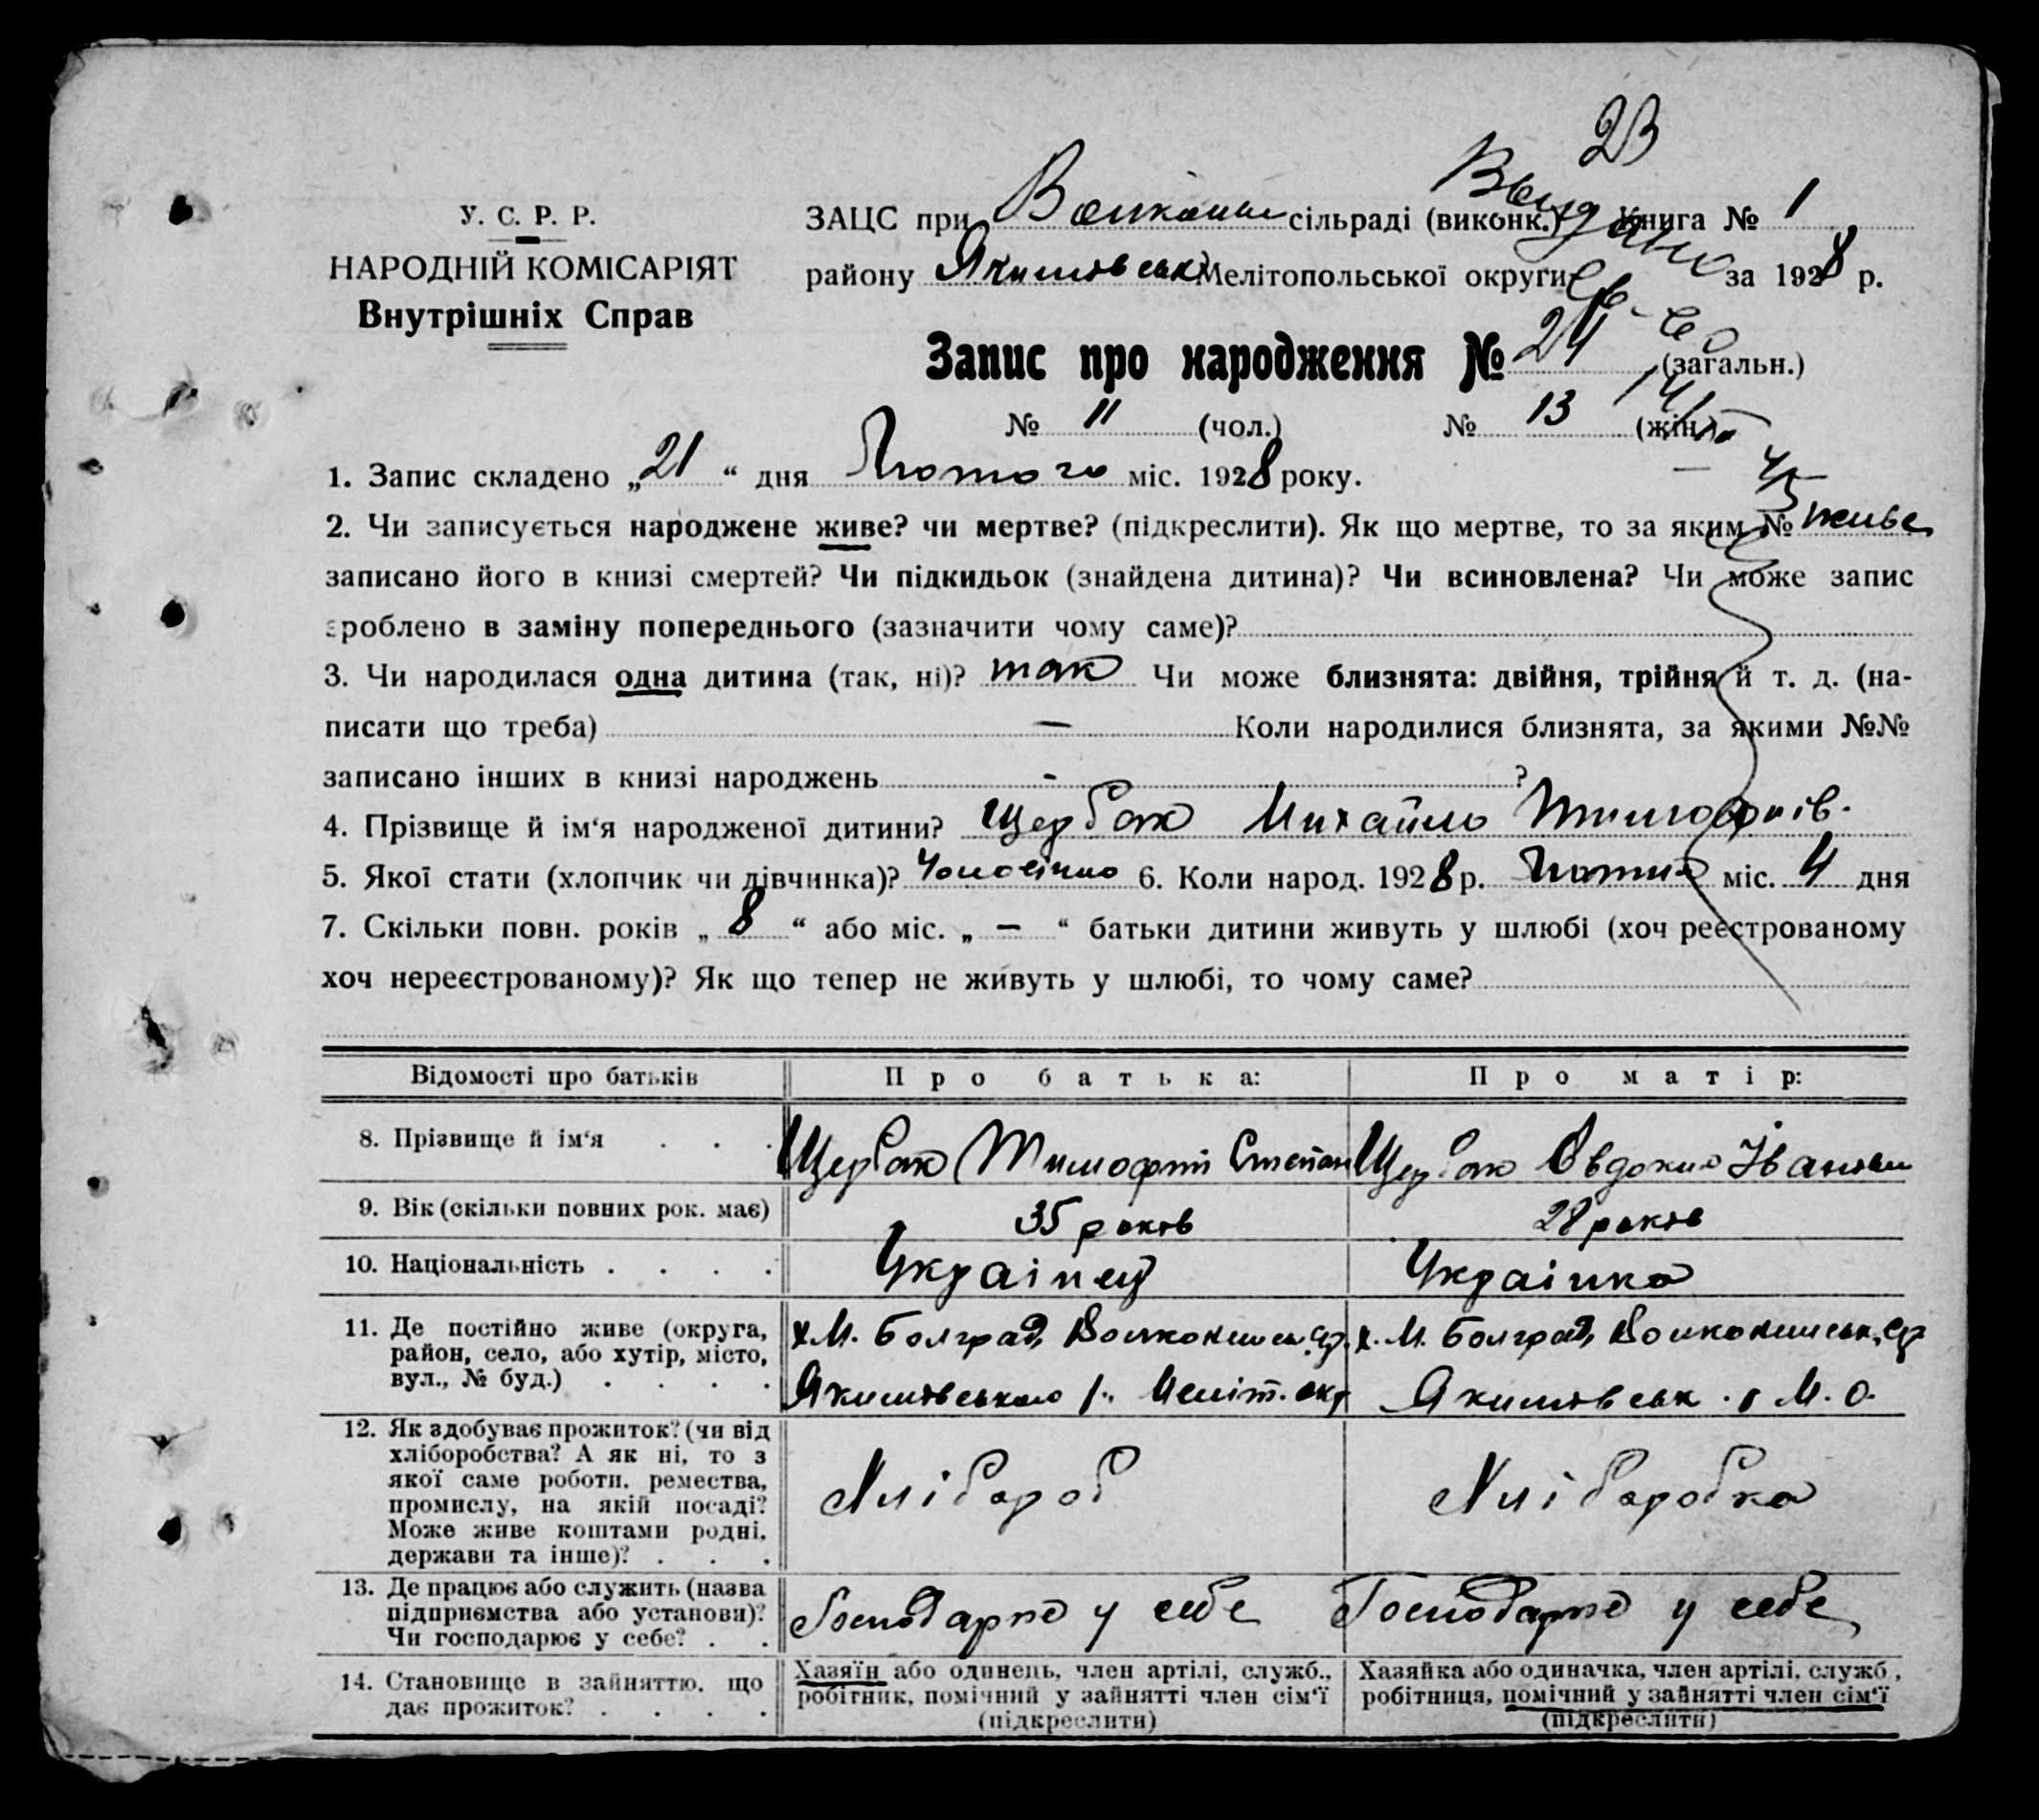 23
У. С. Р. Р.
НАРОДНІЙ КОМІСАРІЯТ
Внутрішніх Справ
ЗАЦС при сільраді (виконк.) Книга № 1
району Якимовськ Мелітопольської округи за 1928 р.
Видано
Запис про народження № 24 (загальн.)
№ 11 (чол.) № 13 (жін.)
45
1. Запис складено „21“ дня Лютого міс. 1928 року.
2. Чи записується народжене живе? чи мертве? (підкреслити). Як що мертве, то за яким № живе
записано його в книзі смертей? Чи підкидьок (знайдена дитина)? Чи всиновлена? Чи може запис
зроблено в заміну попереднього (зазначити чому саме)?
3. Чи народилася одна дитина (так, ні)? так Чи може близнята: двійня, трійня й т. д. (на-
писати що треба) — Коли народилися близнята, за якими №№
записано інших в книзі народжень - ?
4. Прізвище й ім‘я народженої дитини? Щербак Михайло Тимофіїв.
5. Якої стати (хлопчик чи дівчинка)? Чоловічно 6. Коли народ. 1928 р. Лютия міс. 4 дня
7. Скільки повн. років „8“ або міс. „—“ батьки дитини живуть у шлюбі (хоч реєстрованому
хоч нереєстрованому)? Як що тепер не живуть у шлюбі, то чому саме?
Відомості про батьків Про батька: Про матір:
8. Прізвище й ім‘я . . . Щербак Тимофій Степан Щербак Овдокия Іванівн
9. Вік (скільки повних рок. має) 35 років 28 років
10. Національність . . . . Українец Українка
11. Де постійно живе (округа, район, село, або хутір, місто, вул., № буд.) . . . . х. М. Болград, ср. х. М. Болград, ср
Якимовського р. Меліт. окр Якимовськ. р М. О.
12. Як здобуває прожиток? (чи від хліборобства? А як ні, то з якої саме роботи, ремества, промислу, на якій посаді? Може живе коштами родні, держави та інше)? . . . Хлібороб Хліборобка
13. Де працює або служить (назва підприємства або установи)? Чи господарює у себе? . . Господарює у себе Господарює у себе
14. Становище в зайняттю, що дає прожиток? . . . . Хазяїн або одинець, член артілі, служб., робітник, помічний у зайнятті член сім‘ї (підкреслити) Хазяйка або одиначка, член артілі, служб., робітниця, помічний у зайнятті член сім‘ї (підкреслити)